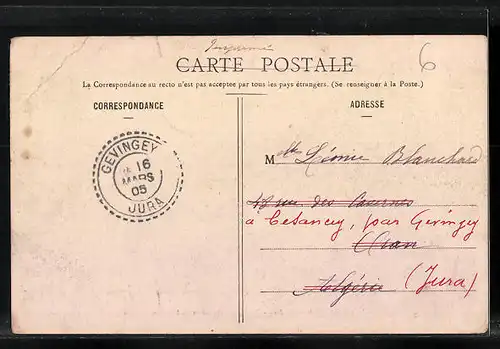 Imprimé
6
CARTE POSTALE
La Correspondance au recto n'est pas acceptée par tous les pays étrangers. (Se renseigner à la Poste.)
CORRESPONDANCE
ADRESSE
GEVINGEY
16
MARS
05
JURA
Mlle Léonie Blanchard
48 rue des Casernes
à Cesancey, par Gevingey
Oran
Algérie (Jura)